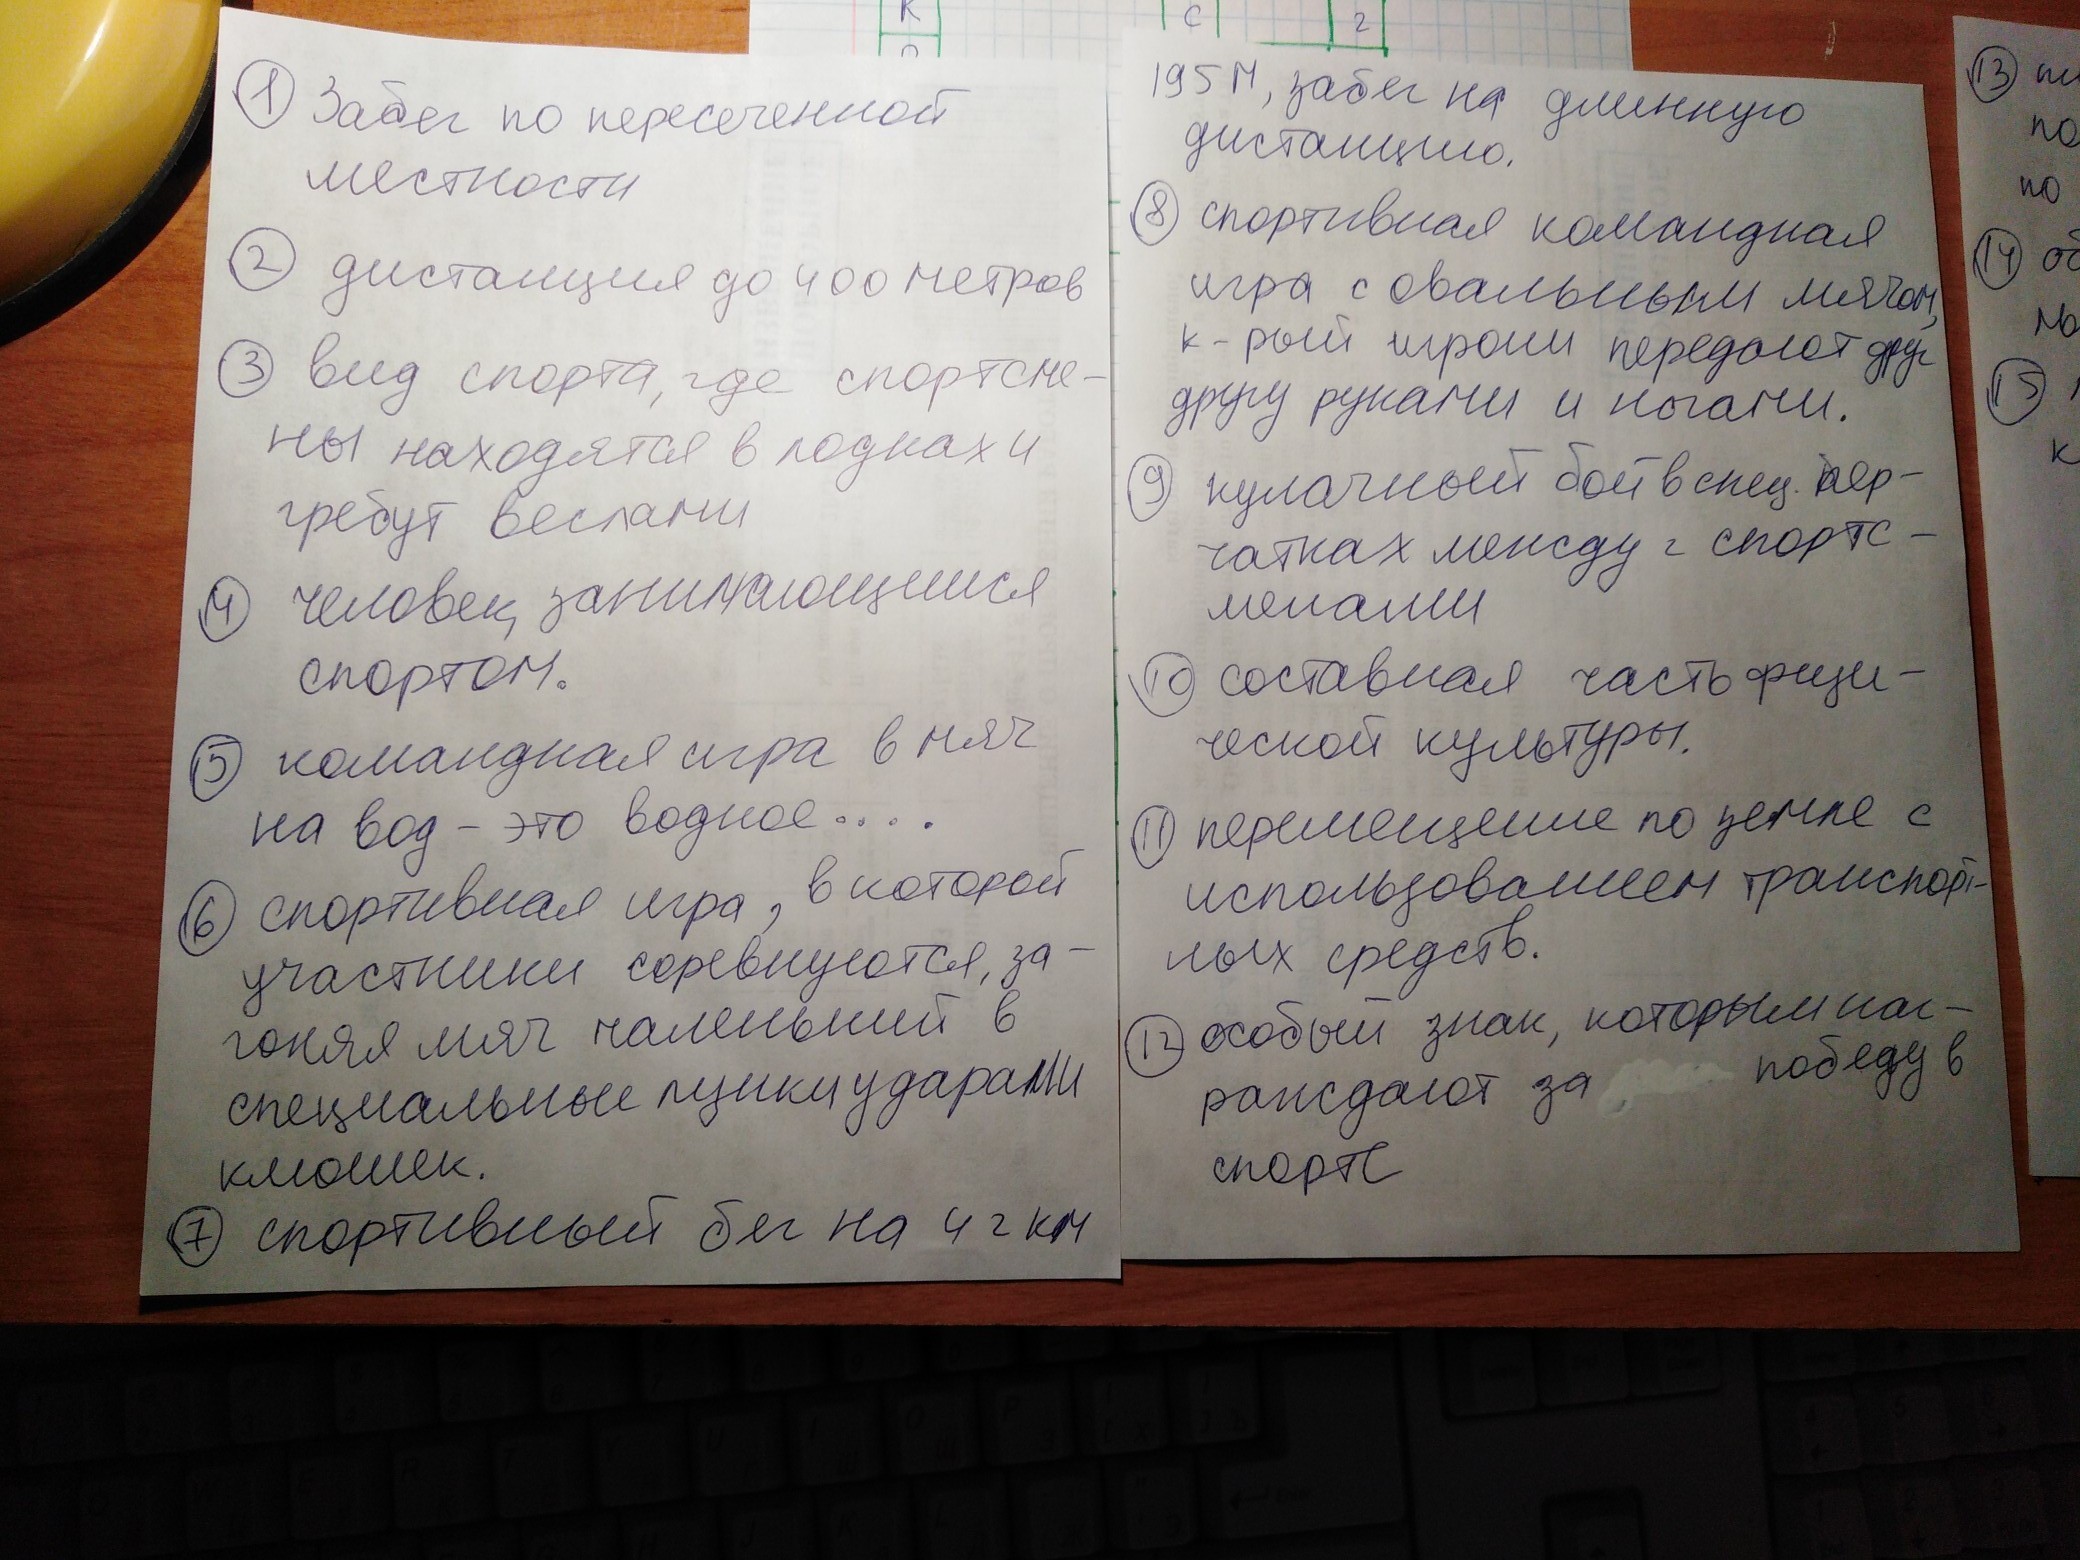 К
С
2
1 Забег по пересеченной
местности
2 дистанция до 400 метров
3 вид спорта, где спортсме-
ны находятся в лодках и
гребут веслами
4 человек, занимающийся
спортом.
5 командная игра в мяч
на вод - это водное....
6 спортивная игра, в которой
участники соревнуются, за-
гоняя мяч маленький в
специальные лунки ударами
клюшек.
7 спортивный бег на 42 км
195 м, забег на длинную
дистанцию.
8 спортивная командная
игра с овальным мячом,
к-рый игроки передают друг
другу руками и ногами.
9 кулачный бой в спец. пер-
чатках между 2 спортс-
менами
10 составная часть физи-
ческой культуры.
11 перемещение по земле с
использованием транспорт-
ных средств.
12 особый знак, которым наг-
раждают за победу в
спорте
13
по
по
14 об
15
к